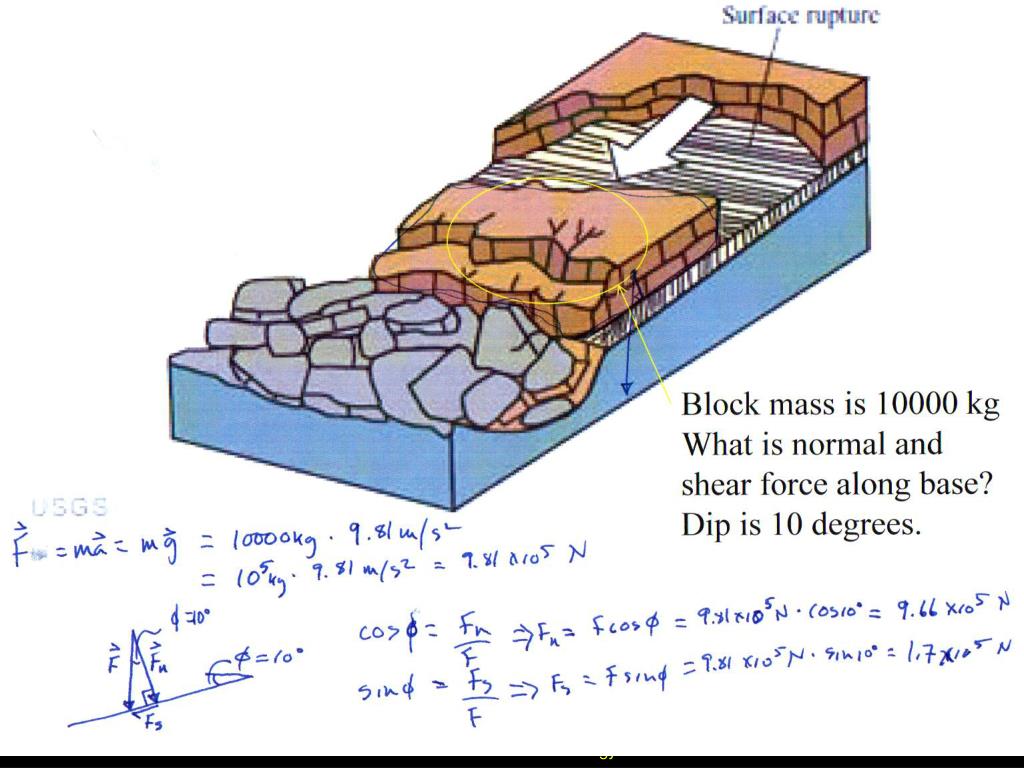 Surface rupture
Block mass is 10000 kg
What is normal and
shear force along base?
Dip is 10 degrees.
USGS
F⃗ = ma⃗ = mg⃗ = 10000kg · 9.81 m/s²
= 10⁵kg · 9.81 m/s² = 9.81 x10⁵ N
ϕ=10°
F⃗ F⃗n ϕ=10°
Fs
cosϕ = Fn/F ⇒ Fn = Fcosϕ = 9.81x10⁵N · cos10° = 9.66 x10⁵ N
sinϕ = Fs/F ⇒ Fs = Fsinϕ = 9.81 x10⁵N · sin10° = 1.7x10⁵ N